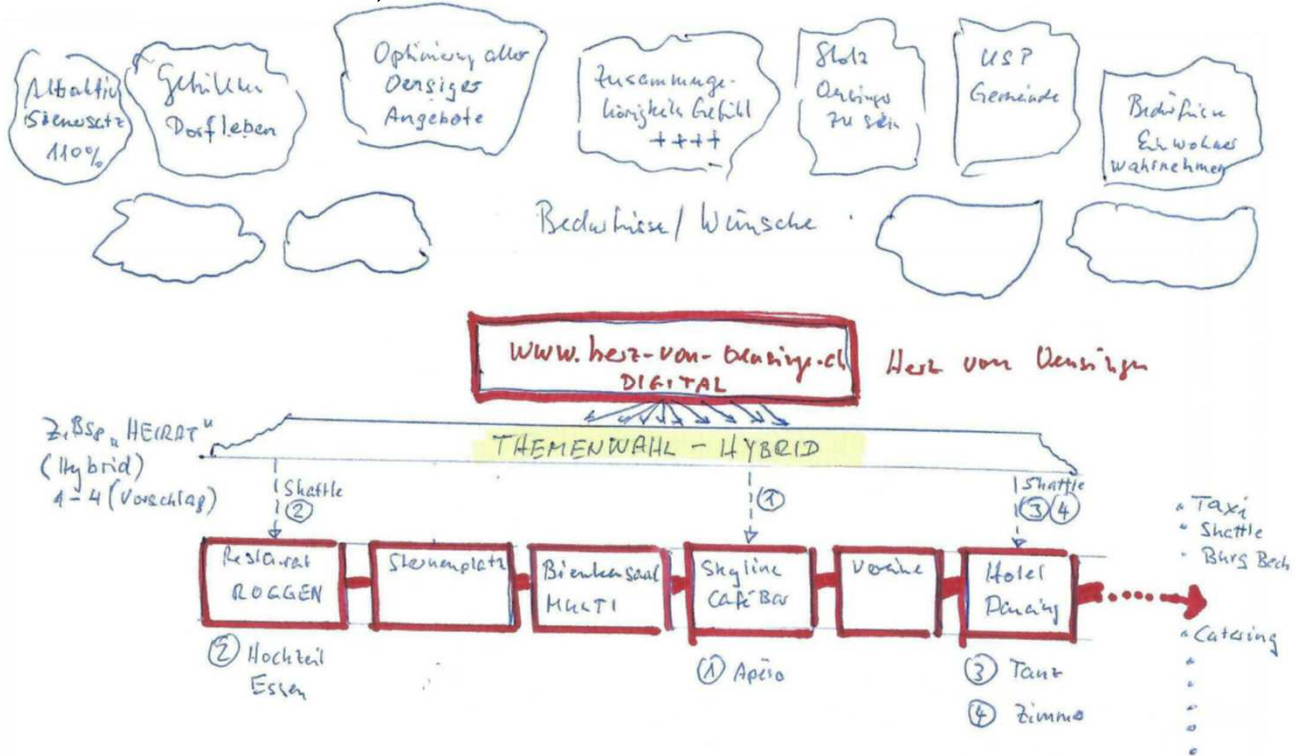 Attraktiv
Sieneusatz
110%
Gefühltes
Dorfleben
Optimierung aller
Oensiger
Angebote
Zusammenge-
hörigkeits Gefühl
++++
Stolz
Oensinger
zu sein
USP
Gemeinde
Bedürfnisse
Einwohner
wahrnehmen
Bedürfnisse/Wünsche
www.herz-von-oensinge.ch
DIGITAL
Herz von Oensingen
Z.Bsp „HEIRAT"
(Hybrid)
1-4 (Vorschlag)
THEMENWAHL - HYBRID
Shattle
②
①
Shattle
③④
Restaurant
ROGGEN
Sternenplatz
Bienkensaal
MULTI
Skyline
Café Bar
Vereine
Hotel
Dancing
Taxi
Shattle
Burg Bech
Catering
② Hochzeit
Essen
① Apéro
③ Tanz
④ Zimmer